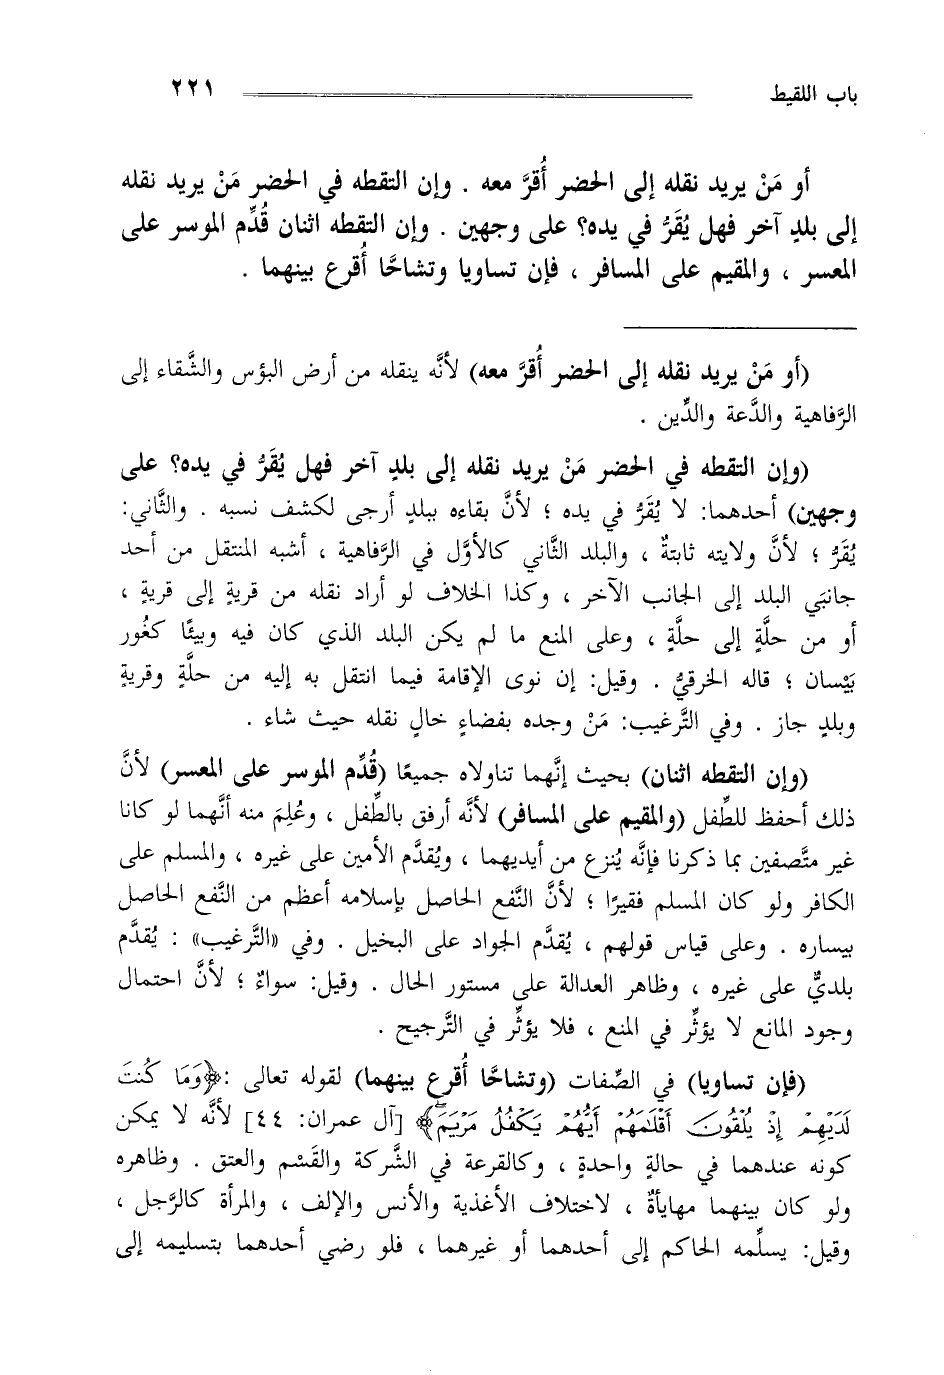 باب اللقيط ٢٢١
أو مَنْ يريد نقله إلى الحضر أُقرَّ معه . وإن التقطه في الحضر مَنْ يريد نقله
إلى بلدٍ آخر فهل يُقَرُّ في يده؟ على وجهين . وإن التقطه اثنان قُدِّم الموسر على
المعسر ، والمقيم على المسافر ، فإن تساويا وتشاحَّا أُقرع بينهما .
(أو مَنْ يريد نقله إلى الحضر أُقرَّ معه) لأنَّه ينقله من أرض البؤس والشَّقاء إلى
الرَّفاهية والدَّعة والدِّين .
(وإن التقطه في الحضر مَنْ يريد نقله إلى بلدٍ آخر فهل يُقَرُّ في يده؟ على
وجهين) أحدهما: لا يُقَرُّ في يده ؛ لأنَّ بقاءه ببلدٍ أرجى لكشف نسبه . والثَّاني:
يُقَرُّ ؛ لأنَّ ولايته ثابتةٌ ، والبلد الثَّاني كالأوَّل في الرَّفاهية ، أشبه المنتقل من أحد
جانبَي البلد إلى الجانب الآخر ، وكذا الخلاف لو أراد نقله من قريةٍ إلى قريةٍ ،
أو من حلَّةٍ إلى حلَّةٍ ، وعلى المنع ما لم يكن البلد الذي كان فيه وبيئًا كغُور
بَيْسان ؛ قاله الخرقيُّ . وقيل: إن نوى الإقامة فيما انتقل به إليه من حلَّةٍ وقريةٍ
وبلدٍ جاز . وفي التَّرغيب: مَنْ وجده بفضاءٍ خالٍ نقله حيث شاء .
(وإن التقطه اثنان) بحيث إنَّهما تناولاه جميعًا (قُدِّم الموسر على المعسر) لأنَّ
ذلك أحفظ للطِّفل (والمقيم على المسافر) لأنَّه أرفق بالطِّفل ، وعُلِمَ منه أنَّهما لو كانا
غير متَّصفين بما ذكرنا فإنَّه يُنزع من أيديهما ، ويُقدَّم الأمين على غيره ، والمسلم على
الكافر ولو كان المسلم فقيرًا ؛ لأنَّ النَّفع الحاصل بإسلامه أعظم من النَّفع الحاصل
بيساره . وعلى قياس قولهم ، يُقدَّم الجواد على البخيل . وفي «التَّرغيب» : يُقدَّم
بلديٌّ على غيره ، وظاهر العدالة على مستور الحال . وقيل: سواءٌ ؛ لأنَّ احتمال
وجود المانع لا يؤثِّر في المنع ، فلا يؤثِّر في التَّرجيح .
(فإن تساويا) في الصِّفات (وتشاحَّا أُقرع بينهما) لقوله تعالى :﴿وَمَا كُنتَ
لَدَيْهِمْ إِذْ يُلْقُونَ أَقْلَٰمَهُمْ أَيُّهُمْ يَكْفُلُ مَرْيَمَ﴾ [آل عمران: ٤٤] لأنَّه لا يمكن
كونه عندهما في حالةٍ واحدةٍ ، وكالقرعة في الشَّركة والقَسْم والعتق . وظاهره
ولو كان بينهما مهايأةٌ ، لاختلاف الأغذية والأنس والإلف ، والمرأة كالرَّجل ،
وقيل: يسلِّمه الحاكم إلى أحدهما أو غيرهما ، فلو رضي أحدهما بتسليمه إلى